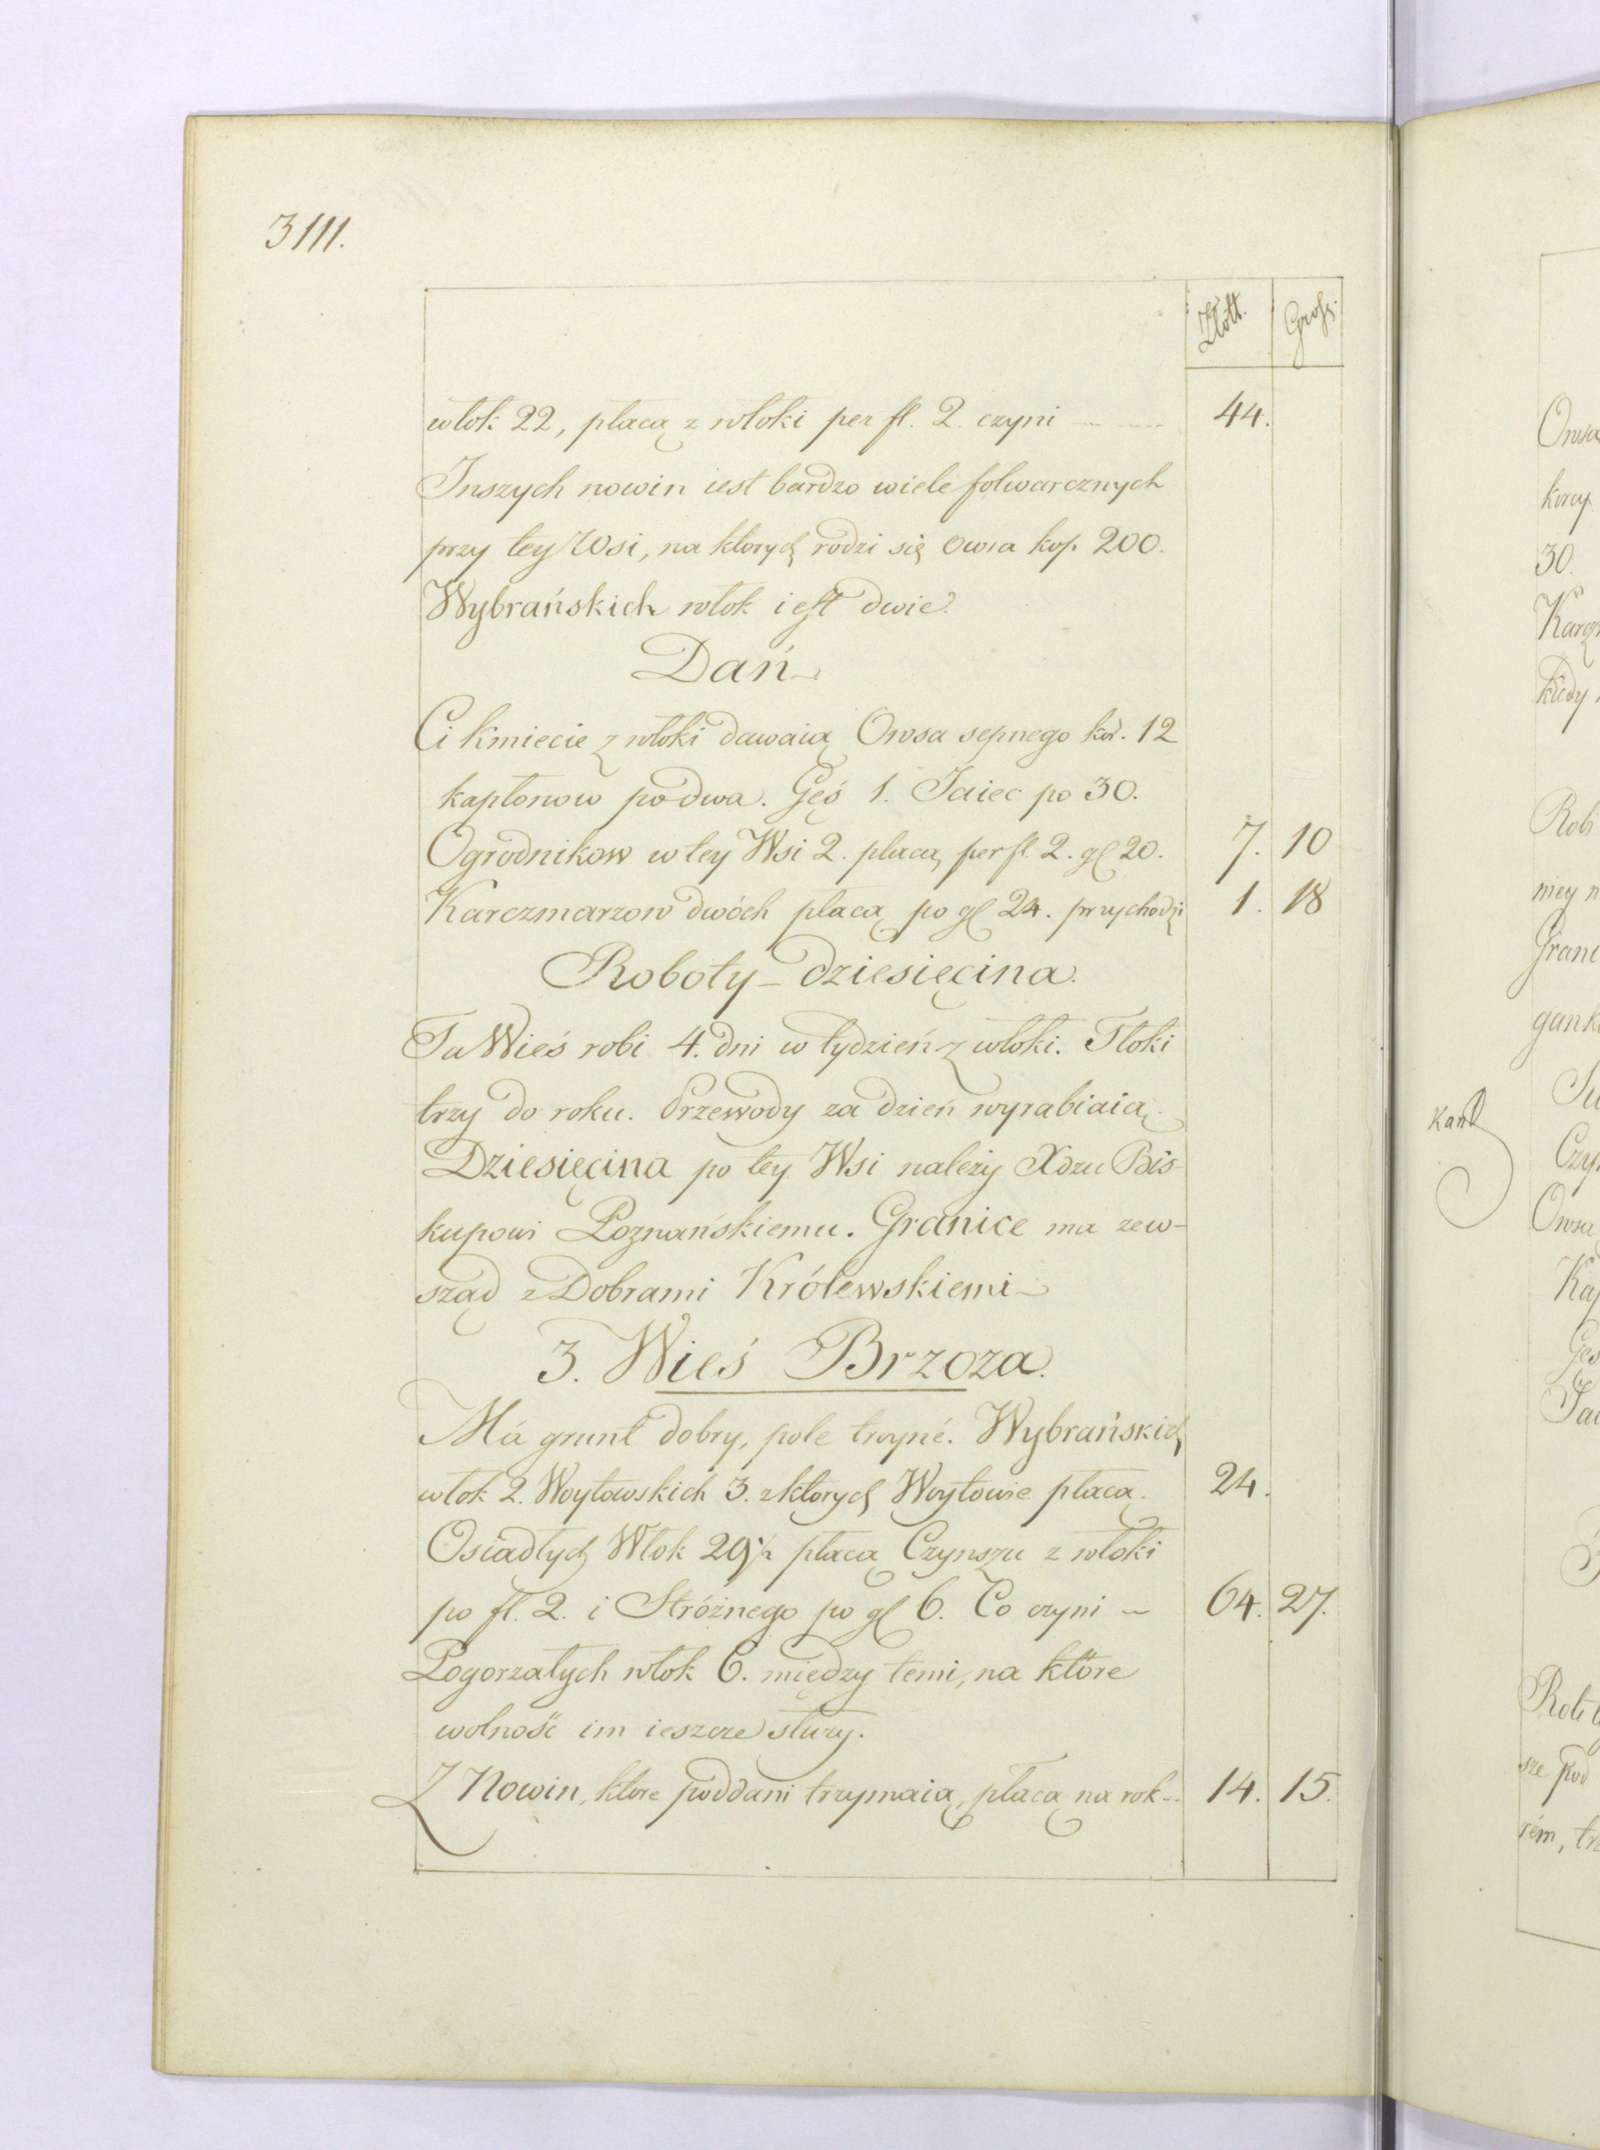 3111.
Złott. Grosz.
włok 22, płacą z włoki per fl. 2. czyni 44.
Inszych nowin iest bardzo wiele folwarcznych
przy tey Wsi, na ktorych rodzi się Owsa kop. 200.
Wybrańskich włok iest dwie.
Dań
Ci kmiecie z włoki dawaią Owsa sepnego kor. 12
kapłonow po dwa. Gęś 1. Jaiec po 30.
Ogrodnikow w tey Wsi 2. płacą per fl. 2. gl 20. 7. 10
Karczmarzow dwóch płacą po gl 24. przychodzi 1. 18
Roboty - dziesięcina.
Ta Wieś robi 4. dni w tydzień z włoki. Tłoki
trzy do roku. Przewody za dzień wyrabiaią.
Dziesięcina po tey Wsi należy Xdzu Bis-
kupowi Poznańskiemu. Granice ma zew-
sząd z Dobrami Królewskiemi
3. Wieś Brzoza.
Má grunt dobry, pole troyné. Wybrańskich
włok 2. Woytowskich 3. z ktorych Woytowie płacą. 24.
Osiadłych Włok 29½ płacą Czynszu z włoki
po fl. 2. i Stróżnego po gl 6. Co czyni 64. 27.
Pogorzałych włok 6. między temi, na które
wolność im ieszcze służy.
Z Nowin, ktore poddani trzymaią, płacą na rok 14. 15.
Owsa
korcy
30.
kiedy
Robi
niey
gank
kand
Owsa
sze pod